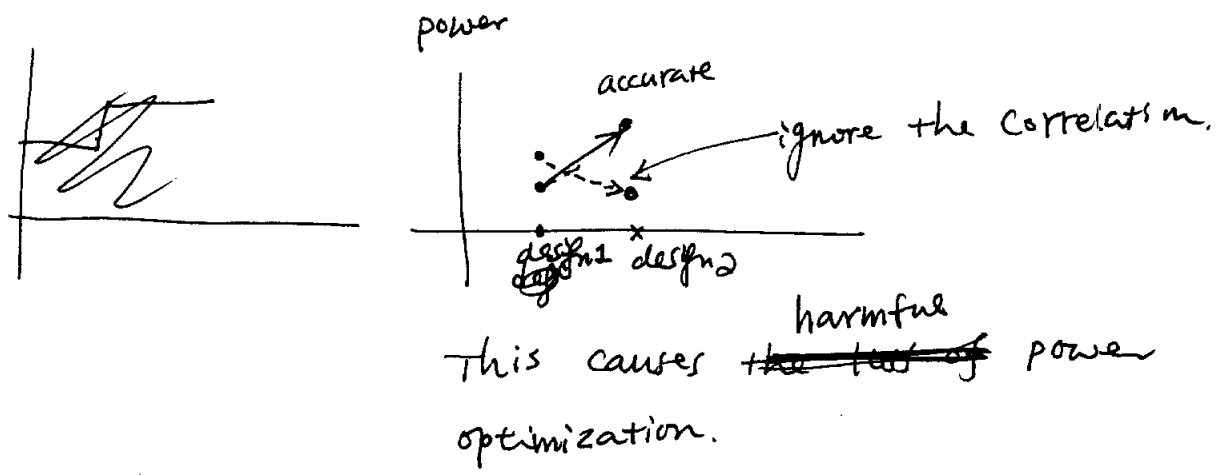 power
accurate
ignore the correlation.
design1 design2
harmful
This causes power
optimization.